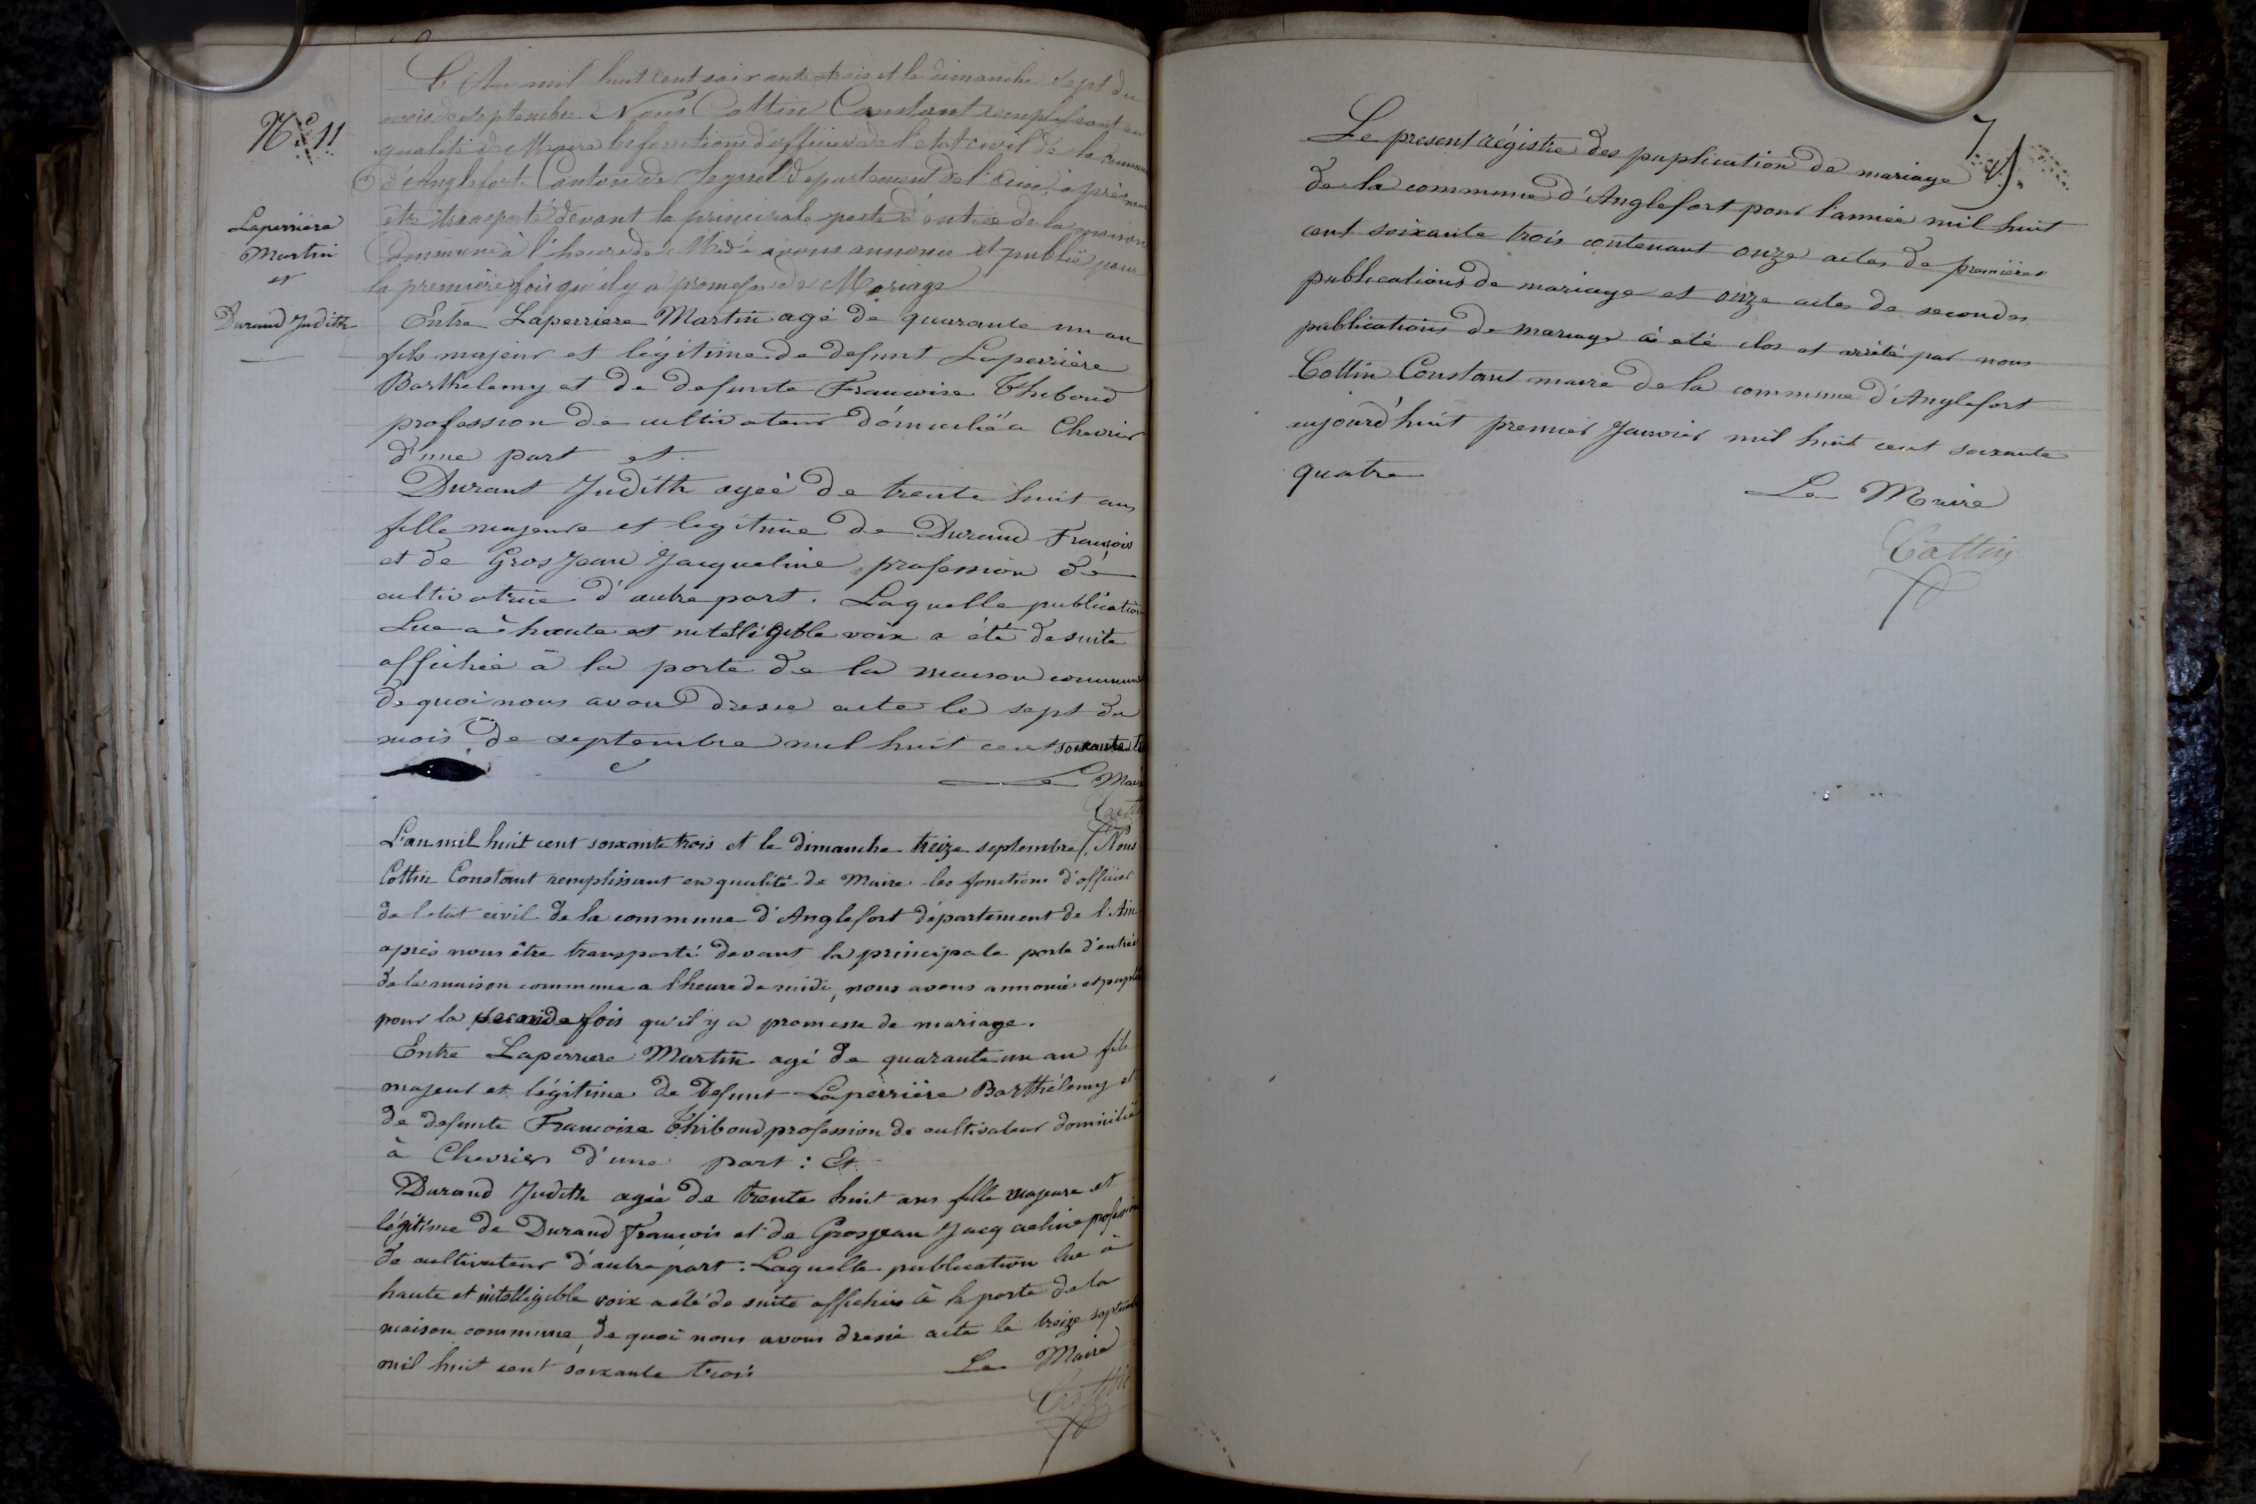 N° 11
Laperrière
Martin
et
Durand Judith
L'An mil huit cent soixante trois et le dimanche sept du
mois de septembre Nous Cottin Constant remplissant en
qualité de Maire les fonctions d'officier de l'etat civil de la commune
d'Anglefort Canton de Seyssel département de l'Ain, après nous
être transporté devant la principale porte d'entrée de la maison
Commune à l'heure de Midi avons annoncé et publié pour
la première fois qu'il y a promesse de Mariage
Entre Laperriere Martin agé de quarante un an
fils majeur et légitime de defunt Laperrière
Barthelemy et de defunte Francoise Thiboud
profession de cultivateur domicilié a Chevrier
d'une part et
Durant Judith ageè de trente huit ans
fille majeure et legitime de Durand François
et de Gros Jean Jacqueline profession de
cultivatrice d'autre part. Laquelle publication
Lue a haute et intelligible voix a été desuite
affichée à la porte de la maison commune
de quoi nous avons dressé acte le sept du
mois de septembre mil huit cent soixante
Le Maire
L'an mil huit cent soixante trois et le dimanche treize septembre Nous
Cottin Constant remplissant en qualité de Maire les fonctions d'officier
de l'etat civil de la commune d'Anglefort département de l'Ain
après nous être transporté devant la principale porte d'entrée
de la maison commune a l'heure de midi, nous avons annoncé et
pour la seconde fois qu'il y a promesse de mariage.
Entre Laperriere Martin agé de quarante un an fils
majeur et légitime de Defunt Laperrière Barthélemy et
de defunte Francoise Thiboud profession de cultivateur domicilié
à Chevrier d'une part : Et
Durand Judith ageè de trente huit ans fille majeure et
légitime de Durand François et de Grosjean Jacqueline profession
de cultivateur d'autre part. Laquelle publication lue à
haute et intelligible voix a été de suite affichée à la porte de la
maison commune, de quoi nous avons dressé acte le treize septembre
mil huit cent soixante trois Le Maire
Cottin
7
Le present régistre des puplication de mariage
de la commune d'Anglefort pour l'année mil huit
cent soixante trois contenant onze actes de premières
publications de mariage et onze actes de secondes
publications de mariage à eté clos et arrêté par nous
Cottin Constant maire de la commune d'Anglefort
aujourd'huit premier Janvier mil huit cent soixante
quatre
Le Maire
Cottin